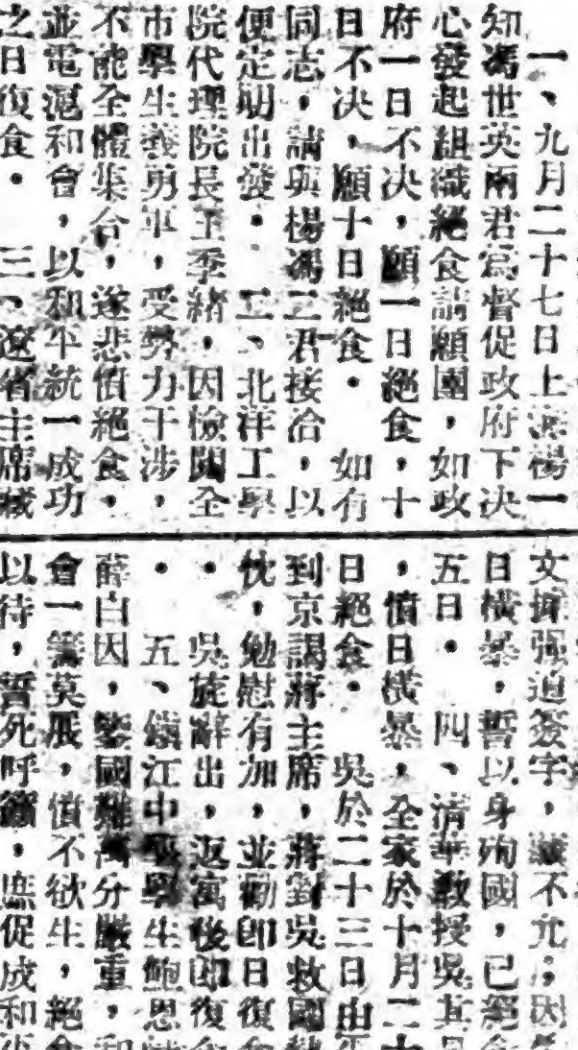 一、九月二十七日上海楊一
知馮世英兩君爲督促政府下决
心發起組織絕食請願團，如政
府一日不决，願一日絕食，十
日不决，願十日絕食。如有
同志，請與楊馮二君接洽，以
便定期出發。二、北洋工學
院代理院長王季緒，因檢閱全
市學生義勇軍，受勢力干涉，
不能全體集合，遂悲憤絕食，
並電滬和會，以和平統一成功
之日復食。三、遼省主席臧
文 强迫簽字，臧不允，因
日橫暴，誓以身殉國，已絕食
五日。四、清華教授吳其昌
，憤日橫暴，全家於十月二十
日絕食。吳於二十三日由平
到京謁蔣主席，蔣對吳救國熱
忱，勉慰有加，並勸即日復食
。吳旋辭出，返寓後即復食
。五、鎮江中學學生鮑思
薛白因，鑒國難萬分嚴重，和
會一籌莫展，憤不欲生，絕食
以待，誓死呼籲，庶促成和平